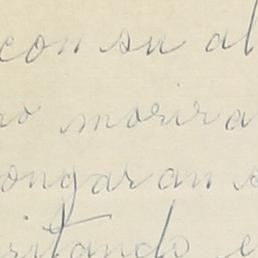 con su al
no morira
ongaran s
ritando e